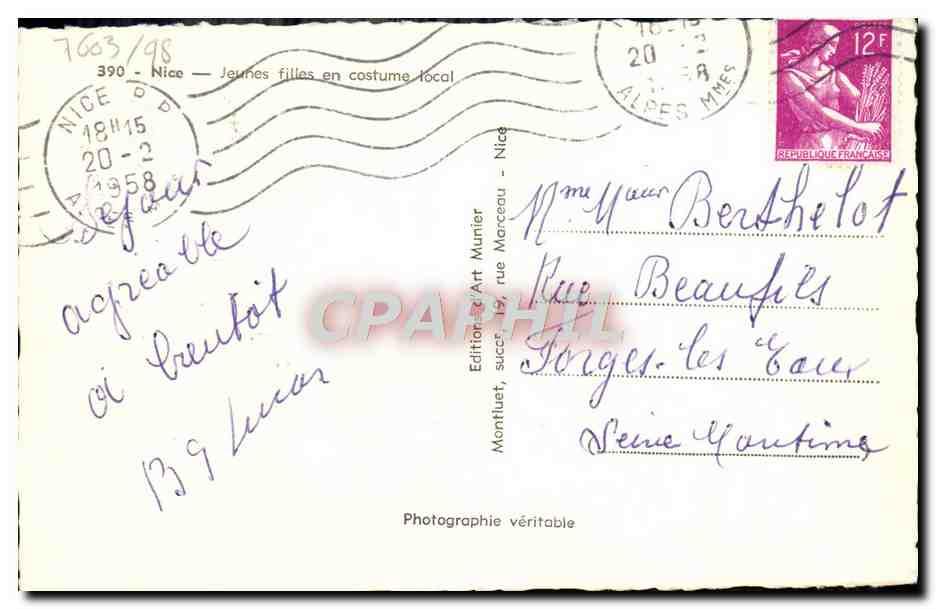 7603/98
390 - Nice — Jeunes filles en costume local
NICE P P
18H15
20-2
1958
20 -2
ALPES MMES
12F
REPUBLIQUE FRANÇAISE
Sejour
agréable
à bientôt
Mme Maur Berthelot
Rue Beaufils
Forges-les Eaux
Seine Maritime
Editions d'Art Munier
Montluet, succr, 19, rue Marceau - Nice
CPAPHIL
Photographie véritable